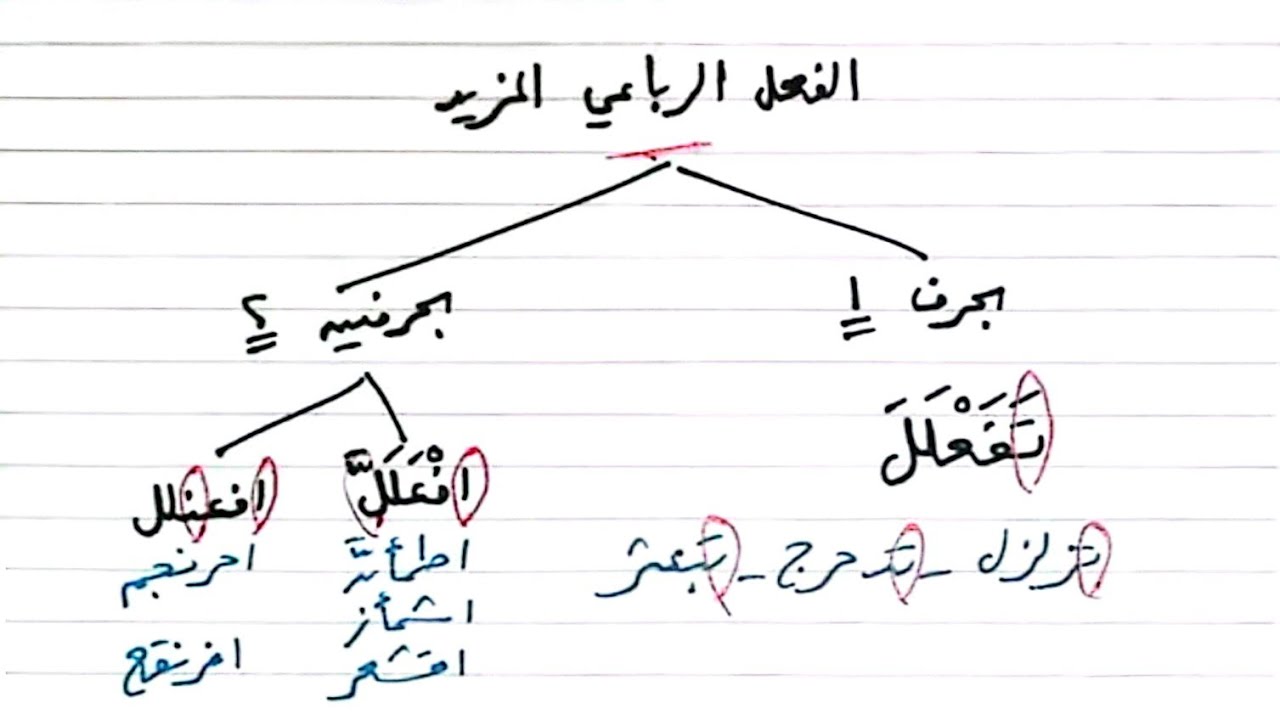 الفعل الرباعي المزيد
بحرف ١
بحرفين ٢
تَفَعْلَلَ
افْعَلَلَّ
افعنلل
تزلزل - تدحرج - تبعثر
اطمأنَّ
احرنجم
اشمأز
افرنقع
اقشعر